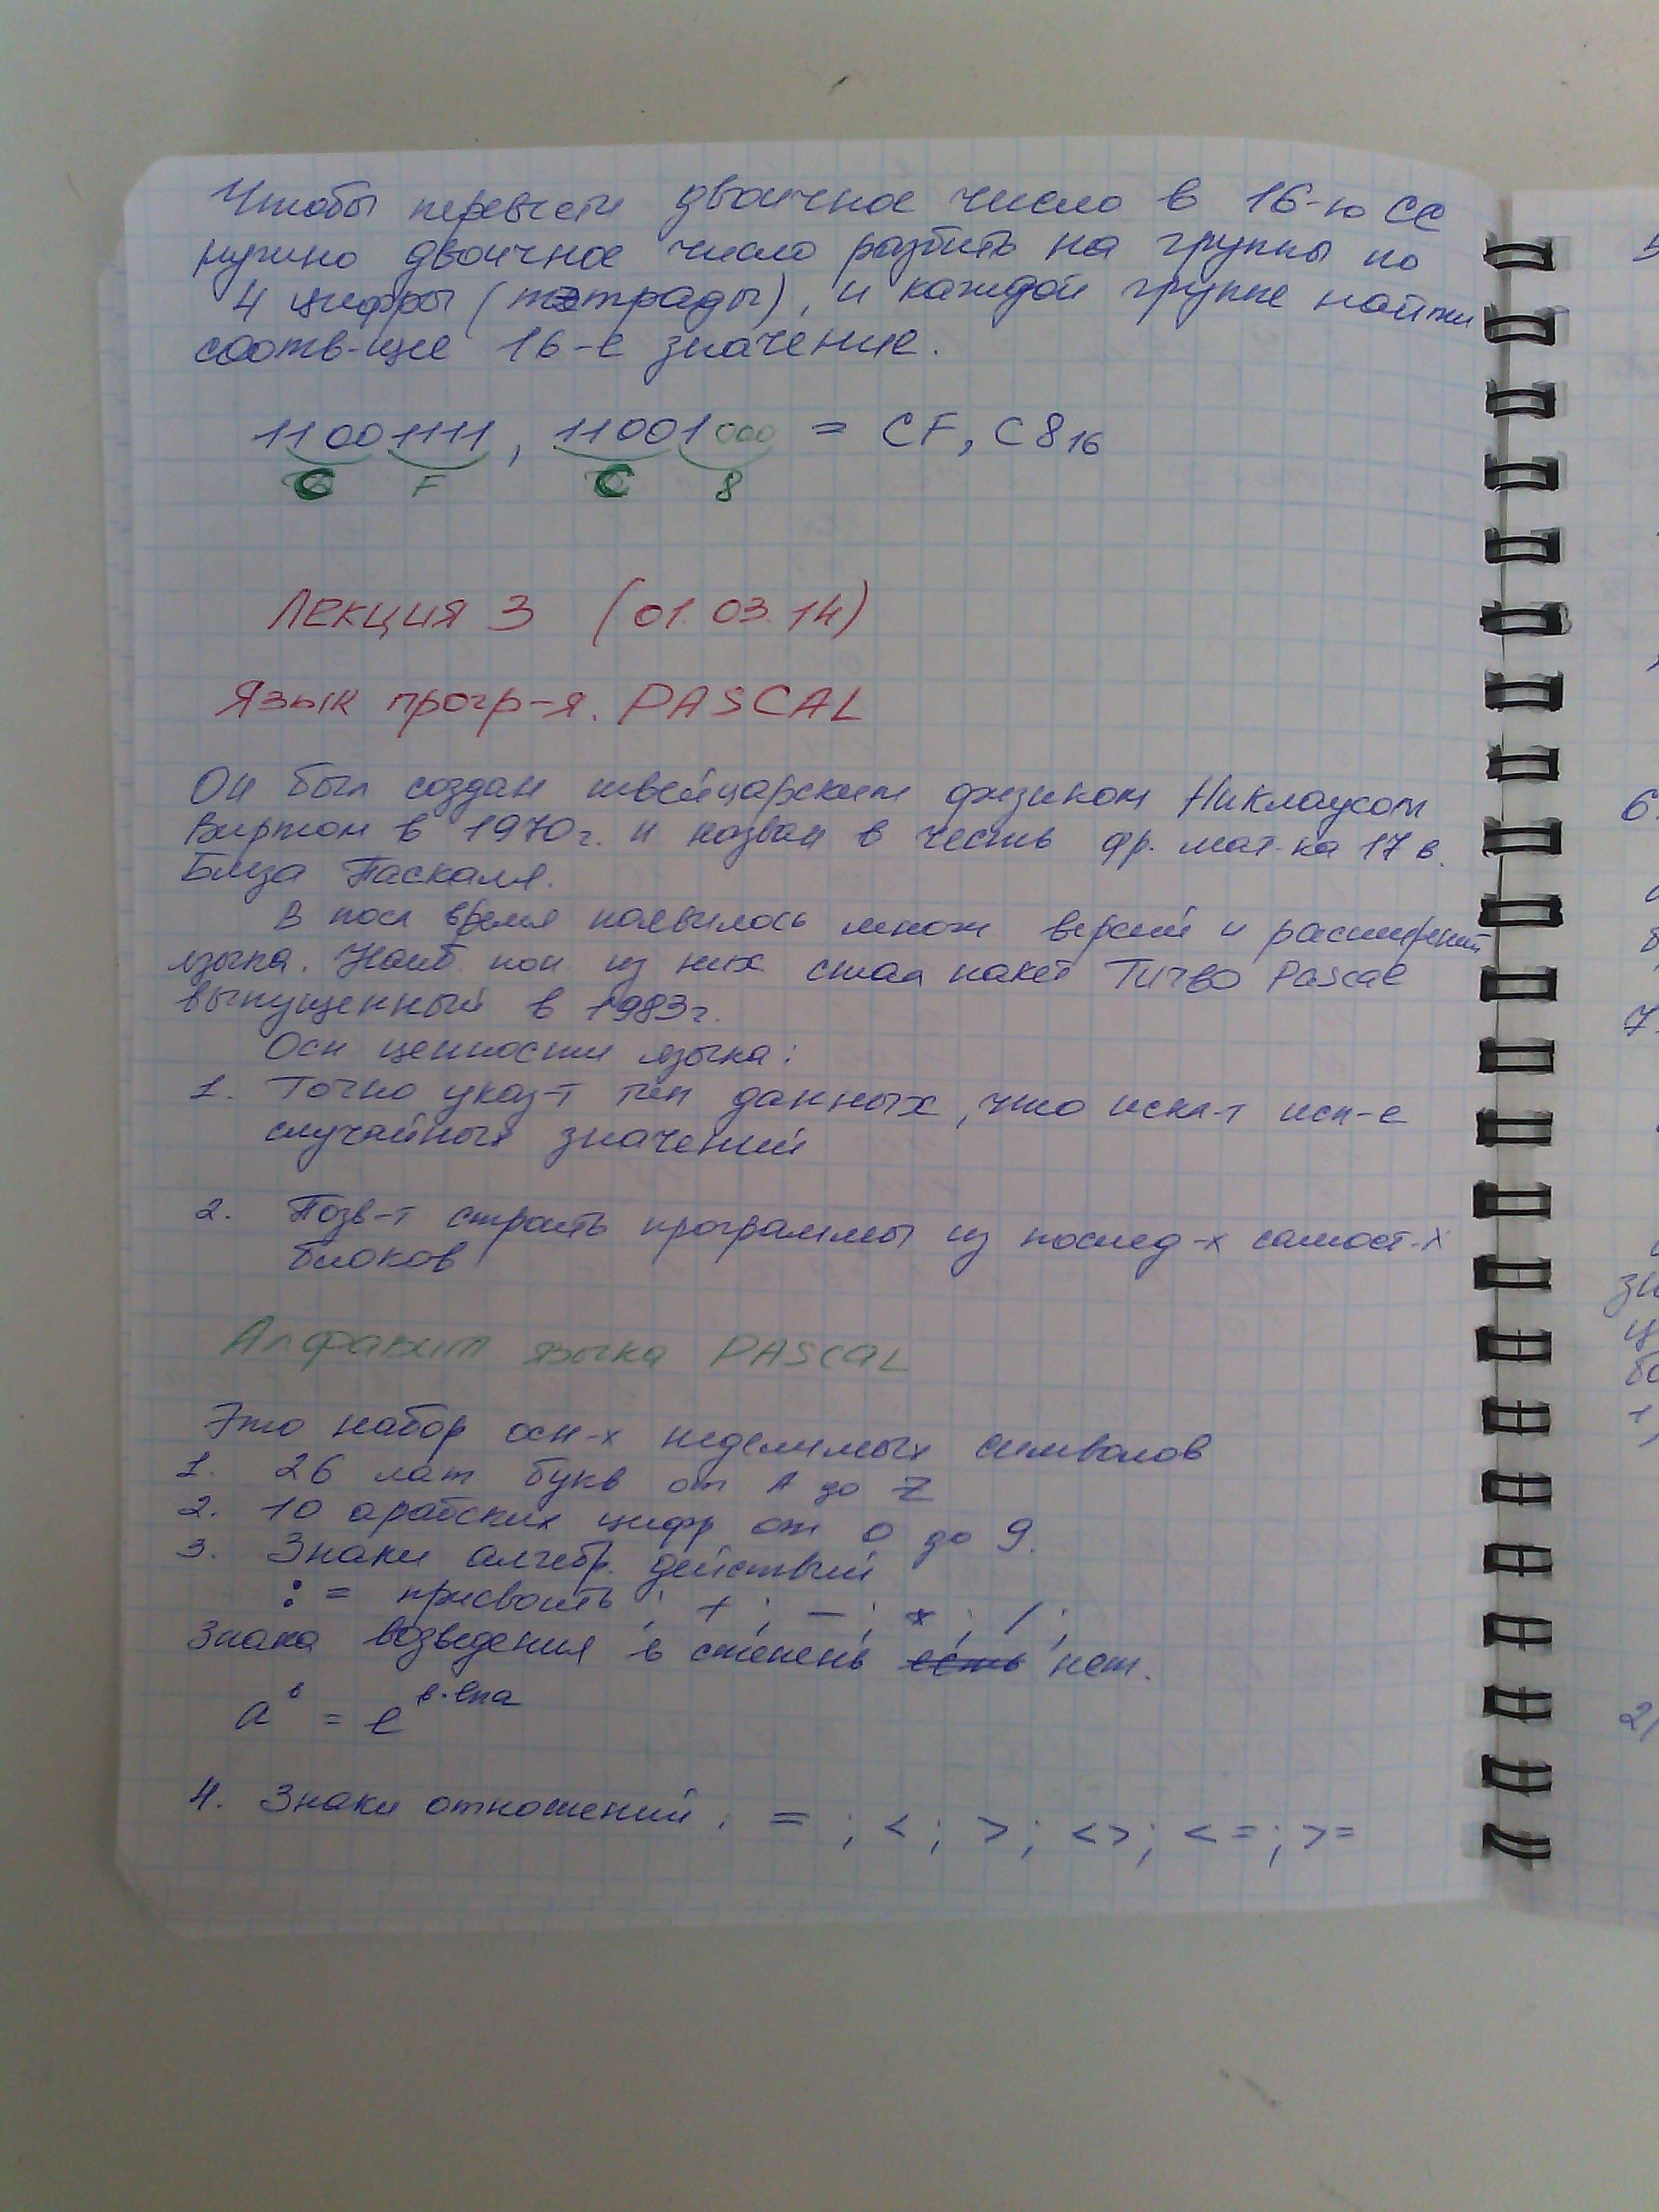 Чтобы перевести двоичное число в 16-ю СС
нужно двоичное число разбить на группы по
4 цифры (тэтрады), и каждой группе найти
соотв-щее 16-е значение.
11001111, 11001000 = CF, C8₁₆
C F C 8
Лекция 3 (01.03.14)
Язык прогр-я. PASCAL
Он был создан швейцарским физиком Никлаусом
Виртом в 1970г. и назван в честь фр. мат-ка 17 в.
Блеза Паскаля.
В посл время появилось множ версий и расширений
языка. Наиб. поп из них стал пакет Turbo Pascal
выпущенный в 1983г.
Осн ценности языка:
1. Точно указ-т тип данных, что искл-т исп-е
случайных значений
2. Позв-т строить программы из послед-х самост-х
блоков
Алфавит языка PASCAL
Это набор осн-х неделимых символов
1. 26 лат букв от A до Z
2. 10 арабских цифр от 0 до 9.
3. Знаки алгебр. действий
:= присвоить ; + ; − ; * ; / ;
Знака возведения в степень есть нет.
aᵇ = e^(b·lna)
4. Знаки отношений : = ; < ; > ; <> ; <= ; >=
5
6.
8
7.
зн
ц
бо
1,
2,